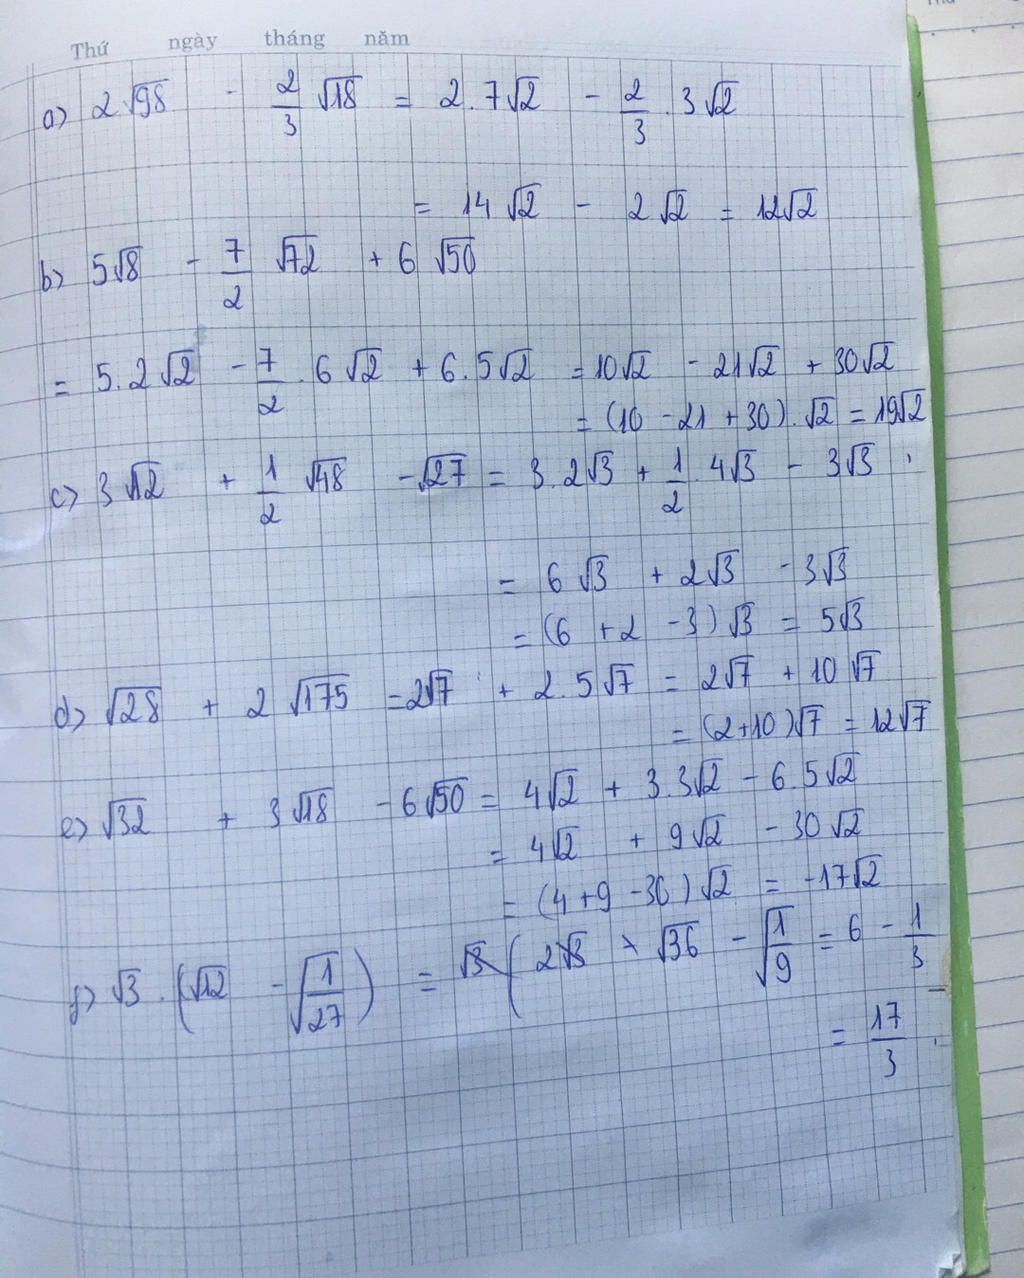 Thứ ngày tháng năm
a) 2√98 - 2/3 √18 = 2.7√2 - 2/3 . 3√2
= 14√2 - 2√2 = 12√2
b) 5√8 - 7/2 √72 + 6√50
= 5.2√2 - 7/2 . 6√2 + 6.5√2 = 10√2 - 21√2 + 30√2
= (10 - 21 + 30).√2 = 19√2
c) 3√12 + 1/2 √48 - √27 = 3.2√3 + 1/2 . 4√3 - 3√3
= 6√3 + 2√3 - 3√3
= (6 + 2 - 3)√3 = 5√3
d) √28 + 2√175 = 2√7 + 2.5√7 = 2√7 + 10√7
= (2+10)√7 = 12√7
e) √32 + 3√18 - 6√50 = 4√2 + 3.3√2 - 6.5√2
= 4√2 + 9√2 - 30√2
= (4 + 9 - 30)√2 = -17√2
f) √3 . (√12 - √(1/27)) = √36 - √(1/9) = 6 - 1/3
= 17/3